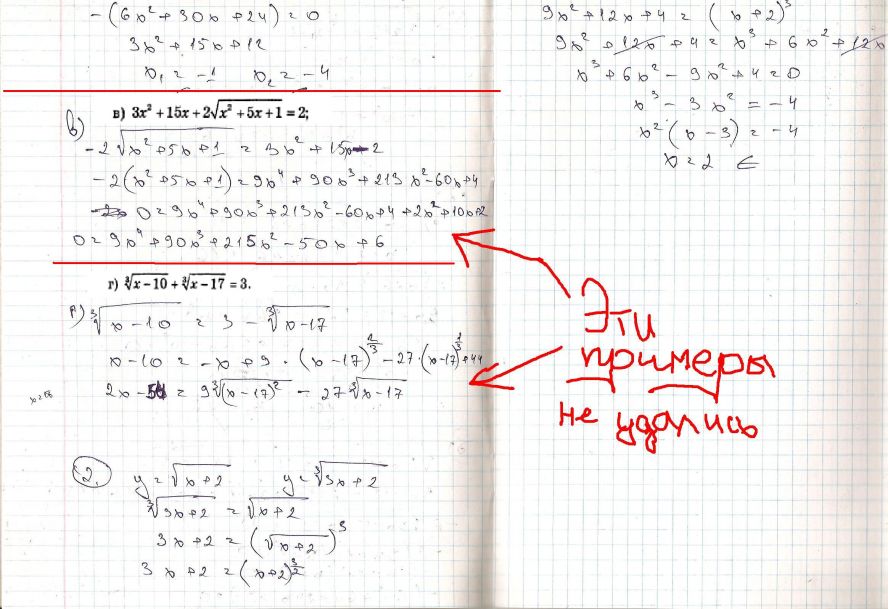 -(6x²+30x+24)=0
3x²+15x+12
x₁=-1 x₂=-4
в) 3x² + 15x + 2√(x² + 5x + 1) = 2;
в)
-2√(x²+5x+1) = 3x²+15x-2
-2(x²+5x+1)=9x⁴+90x³+213x²-60x+4
0=9x⁴+90x³+213x²-60x+4+2x²+10x+2
0=9x⁴+90x³+215x²-50x+6
г) ∛(x-10) + ∛(x-17) = 3.
г) ∛(x-10) = 3 - ∛(x-17)
x-10 = -x+9·(x-17)^(2/3) -27·(x-17)^(1/3)+44
2x-54 = 9∛((x-17)²) - 27∛(x-17)
2. y=√(x+2) y=∛(3x+2)
∛(3x+2) = √(x+2)
3x+2=(√(x+2))³
3x+2=(x+2)^(3/2)
9x²+12x+4=(x+2)³
9x²+12x+4=x³+6x²+12x
x³+6x²-9x²+4=0
x³-3x²=-4
x²(x-3)=-4
x=2 ∈
Эти
примеры
не удались